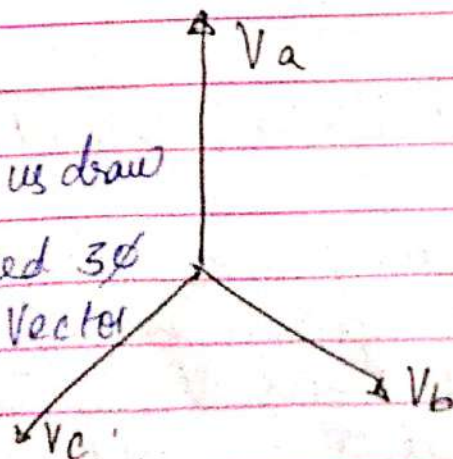 Va
us draw
ed 3ø
Vector
Vb
Vc.